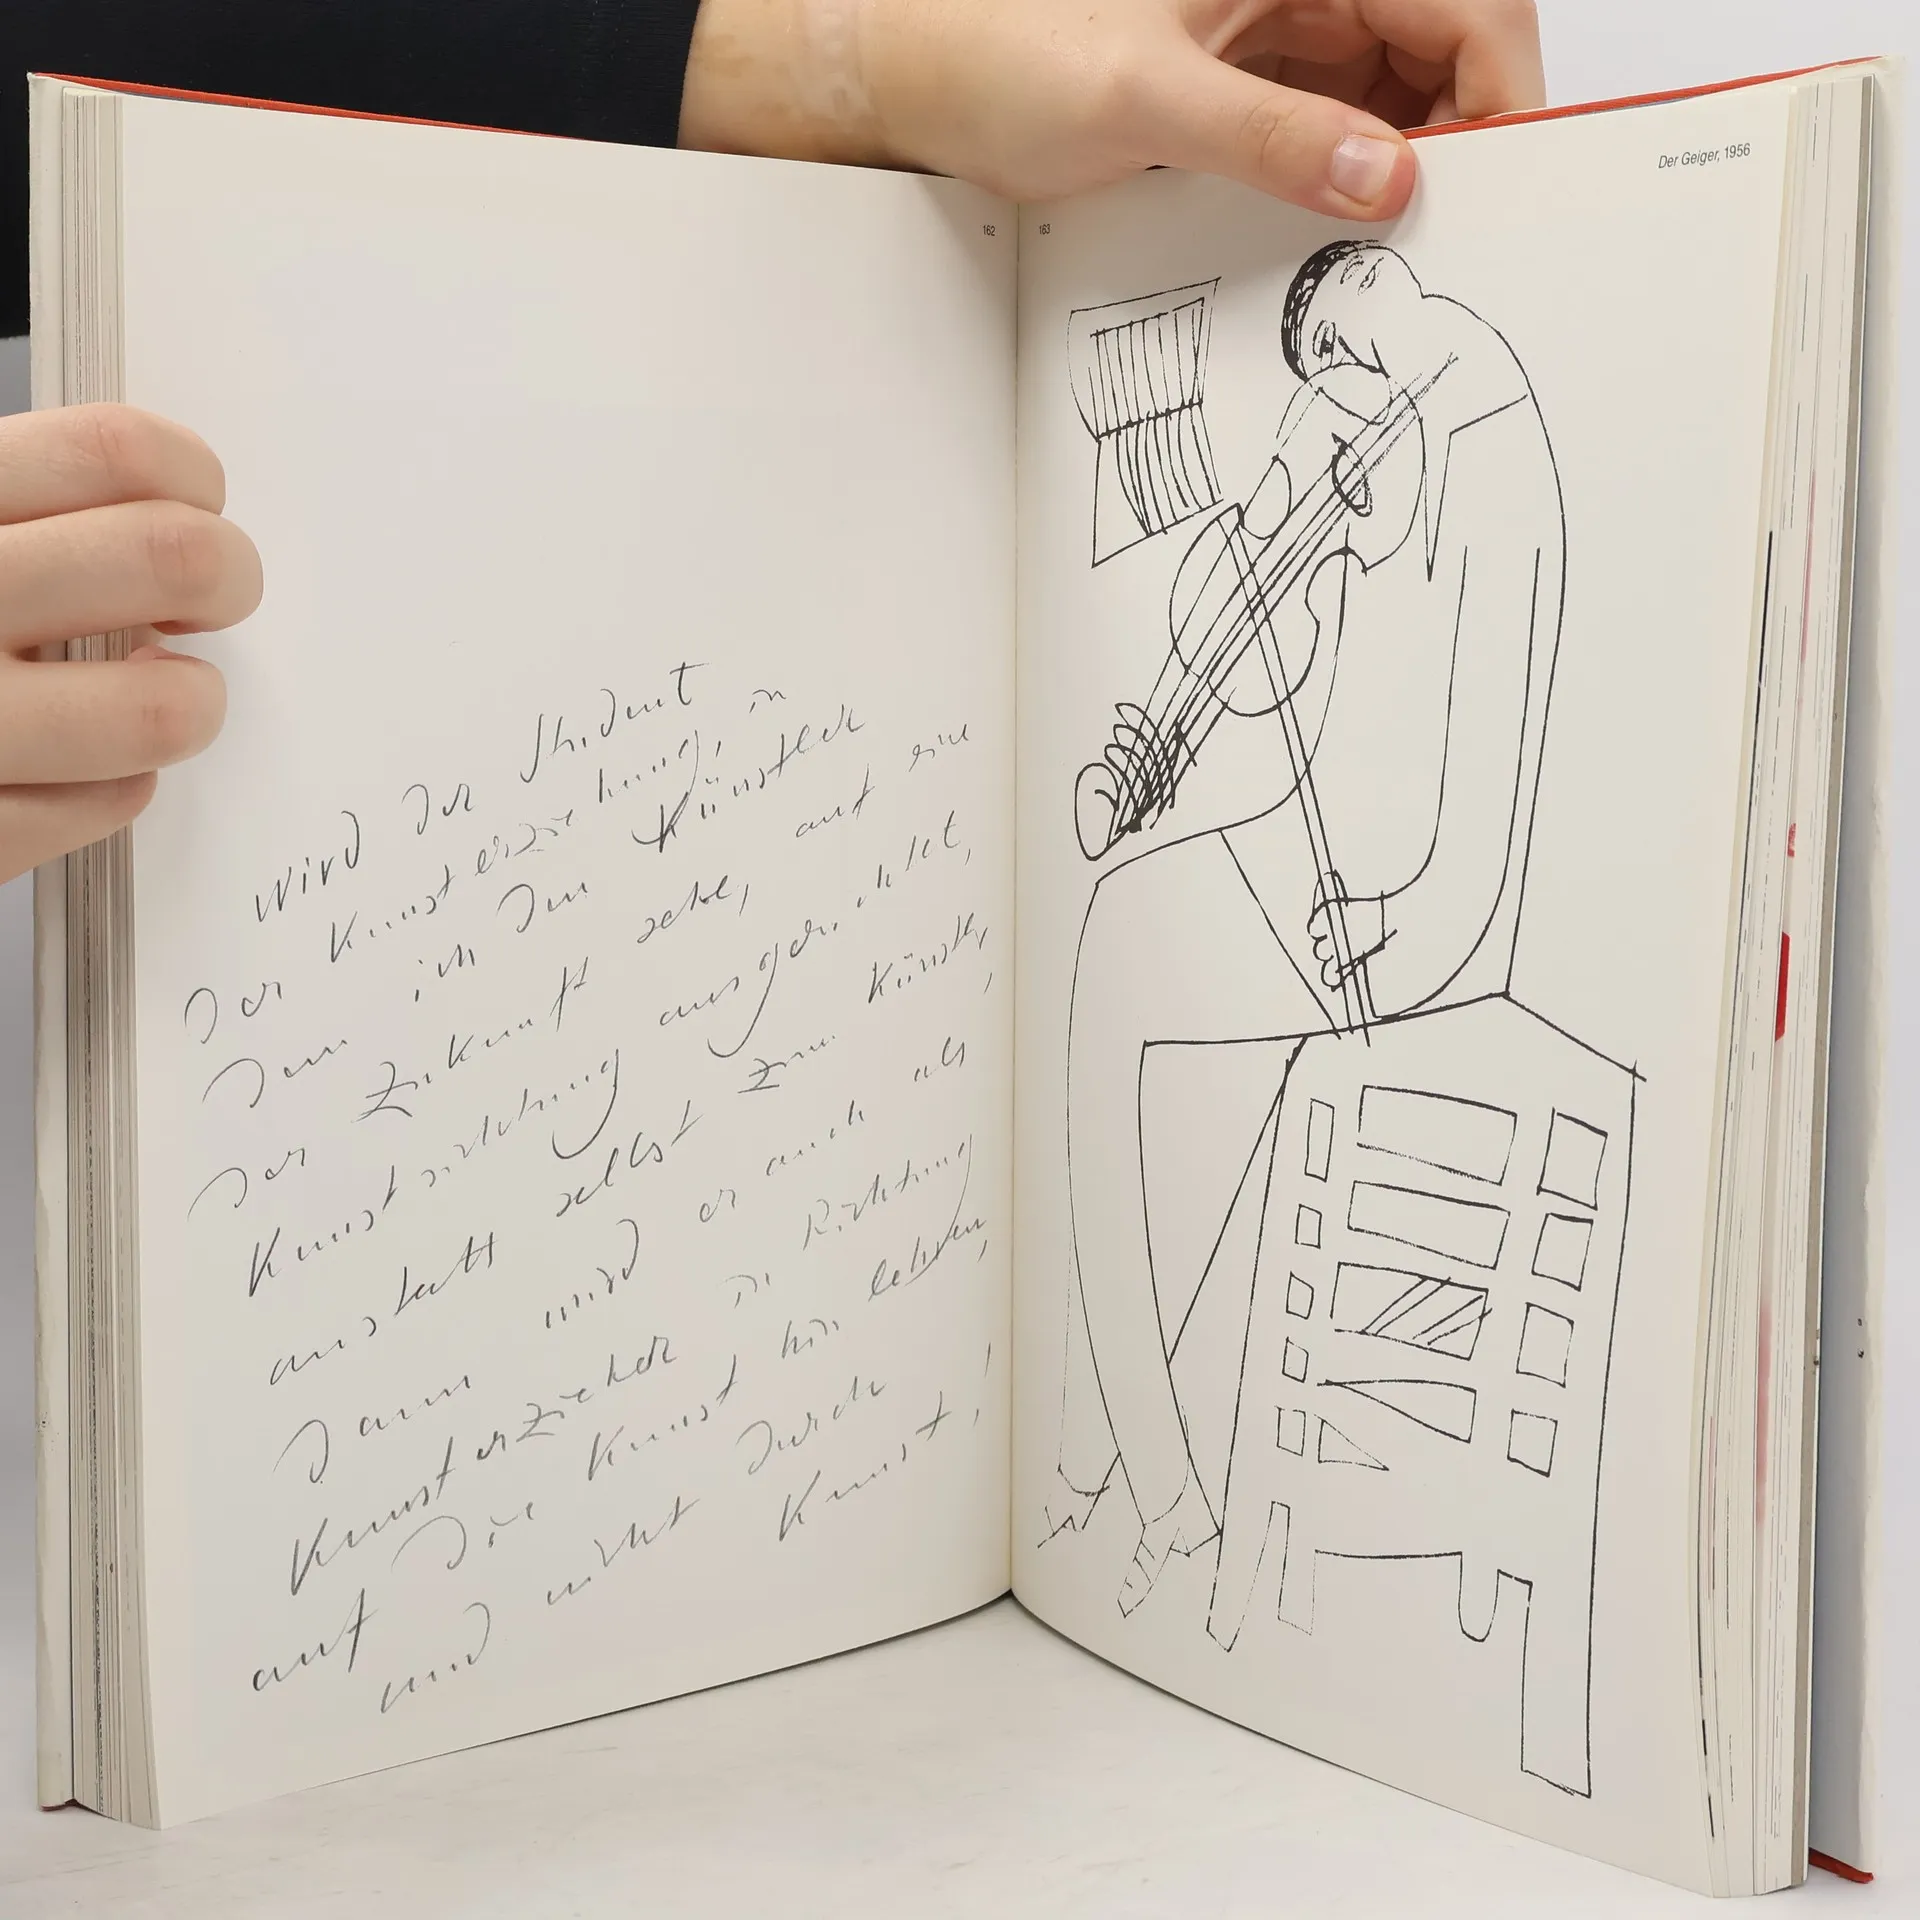 Wird der Student
der Kunsterziehung, in
dem ich den Künstler
der Zukunft sehe, auf eine
Kunstrichtung ausgerichtet,
anstatt selbst zum Künstler,
dann wird er auch als
Kunsterzieher in Richtung
auf die Kunst hin lehren,
und nicht durch
Kunst!
162
163
Der Geiger, 1956